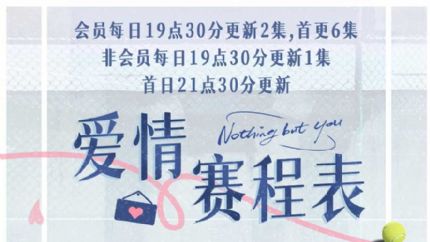 会员每日19点30分更新2集,首更6集
非会员每日19点30分更新1集
首日21点30分更新
爱情
Nothing but you
赛程表